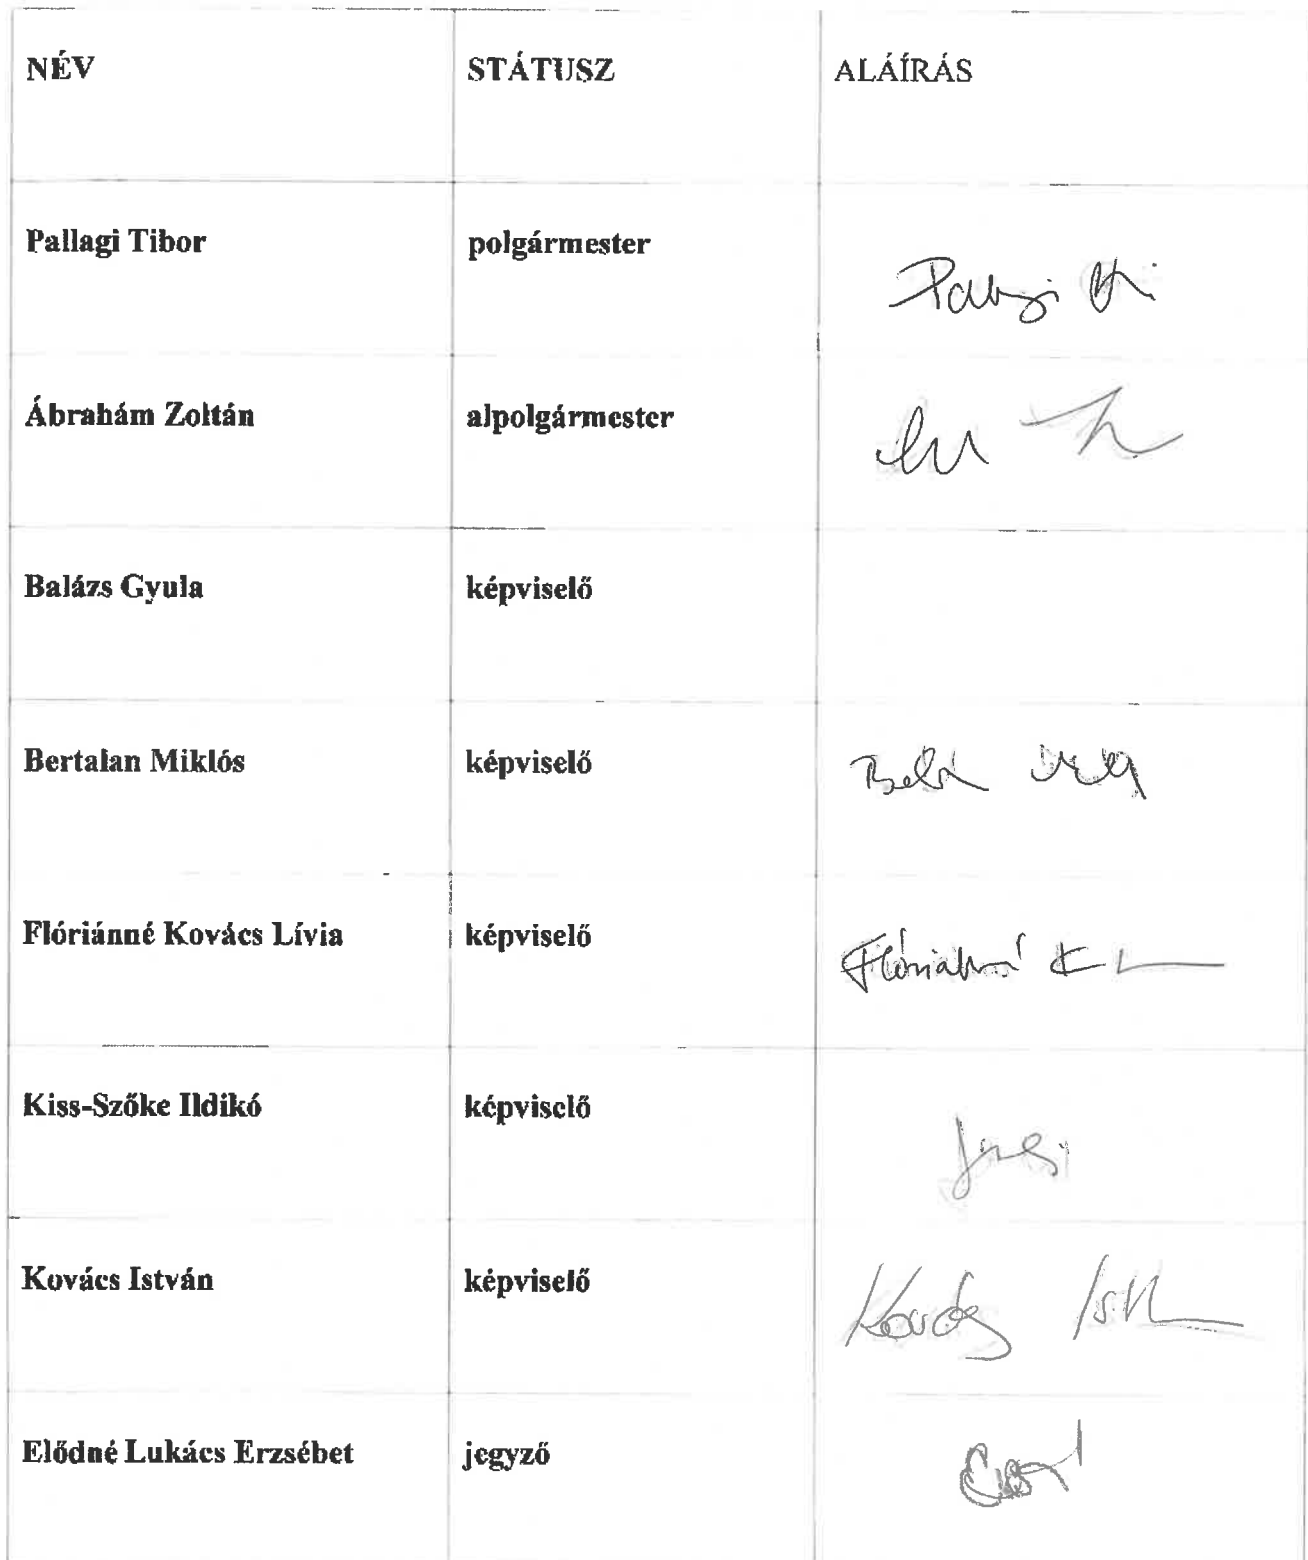 NÉV STÁTUSZ ALÁÍRÁS
Pallagi Tibor polgármester
Ábrahám Zoltán alpolgármester
Balázs Gyula képviselő
Bertalan Miklós képviselő
Flóriánné Kovács Lívia képviselő
Flóriánné K L
Kiss-Szőke Ildikó képviselő
Kovács István képviselő
Kovács
Elődné Lukács Erzsébet jegyző